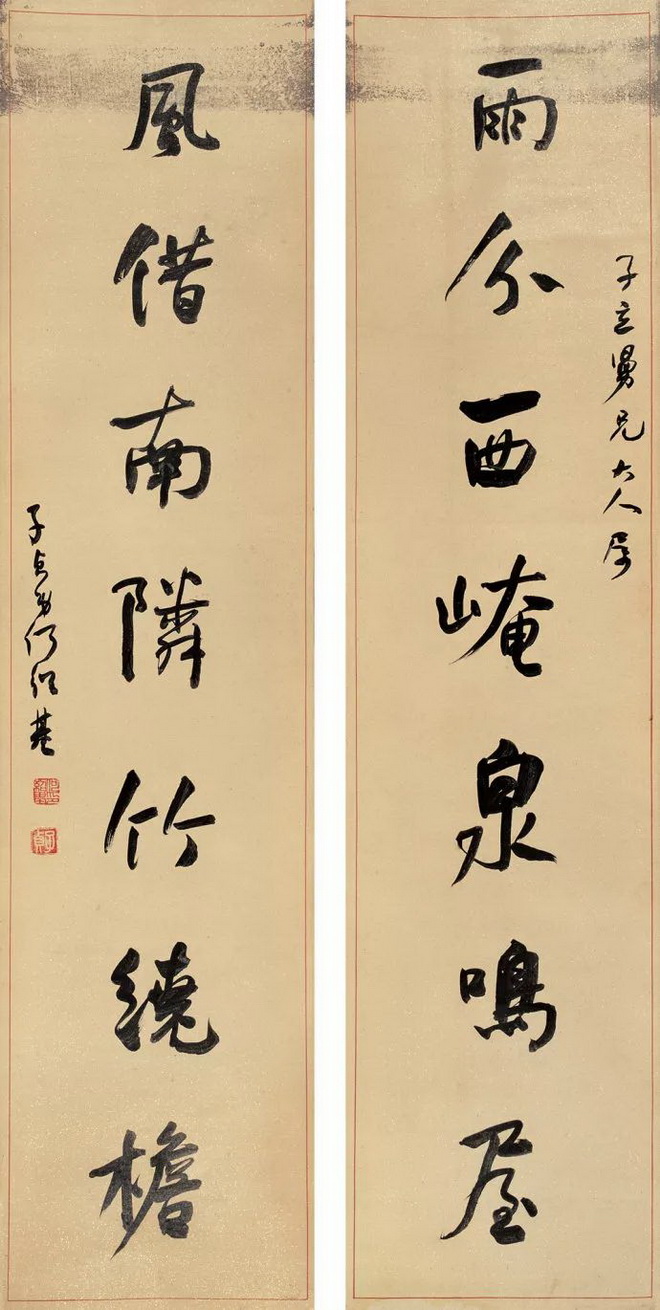 子立舅兄大人属
雨分西崦泉鳴屋
風借南隣竹繞檐
子貞弟何紹基
子貞